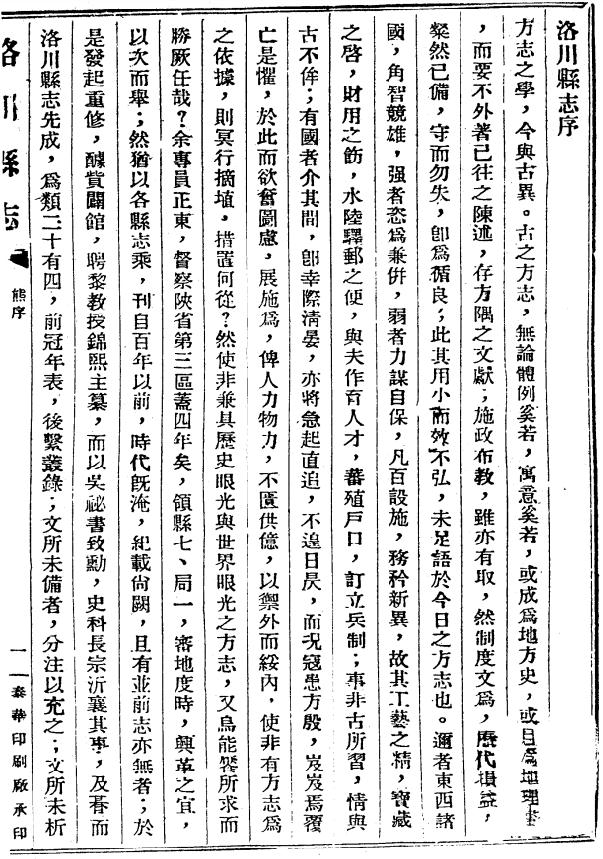 洛川縣志序
方志之學，今與古異。古之方志，無論體例奚若，寓意奚若，或成爲地方史，或目爲地理書
，而要不外著已往之陳述，存方隅之文獻；施政布教，雖亦有取，然制度文爲，歷代損益，
粲然已備，守而勿失，卽爲循良；此其用小而效不弘，未足語於今日之方志也。邇者東西諸
國，角智競雄，强者恣爲兼併，弱者力謀自保，凡百設施，務矜新異，故其工藝之精，寶藏
之啓，財用之飭，水陸驛郵之便，與夫作育人才，蕃殖戶口，訂立兵制；事非古所習，情與
古不侔；有國者介其間，卽幸際清晏，亦將急起直追，不遑日昃，而况寇患方殷，岌岌焉覆
亡是懼，於此而欲奮圖慮，展施爲，俾人力物力，不匱供億，以禦外而綏內，使非有方志爲
之依據，則冥行摘埴，措置何從？然使非兼具歷史眼光與世界眼光之方志，又烏能答所求而
勝厥任哉？余專員正東，督察陝省第三區蓋四年矣，領縣七、局一，審地度時，興革之宜，
以次而舉；然猶以各縣志乘，刊自百年以前，時代旣淹，紀載尙闕，且有並前志亦無者；於
是發起重修，醵貲闢館，聘黎教授錦熙主纂，而以吳祕書致勳，史科長宗沂襄其事，及朞而
洛川縣志先成，爲類二十有四，前冠年表，後繫叢錄；文所未備者，分注以充之；文所未析
洛川縣志
熊序
一
泰華印刷廠承印